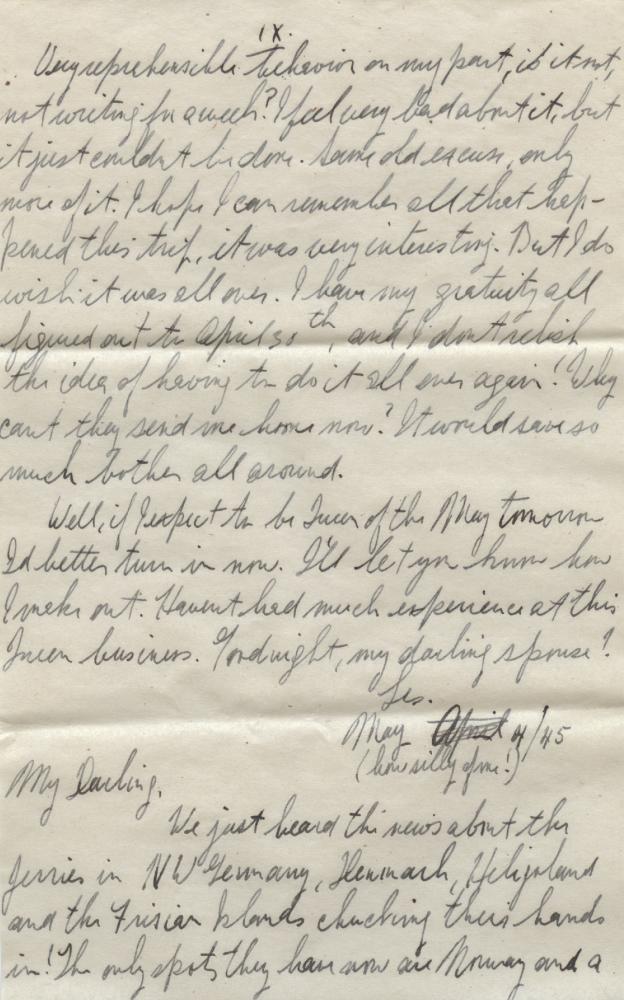 IX.
Very reprehensible behavior on my part, is it not,
not writing for a week? I feel very bad about it, but
it just couldn't be done. Same old excuse, only
more of it. I hope I can remember all that hap-
pened this trip, it was very interesting. But I do
wish it was all over. I have my gratuity all
figured out to April 30th, and I don't relish
the idea of having to do it all over again! Why
can't they send me home now? It would save so
much bother all around.
Well, if I expect to be Queen of the May tomorrow
I'd better turn in now. I'll let you know how
I make out. Haven't had much experience at this
Queen business. Goodnight, my darling spouse!
Les.
May April 4/45
(how silly of me!)
My Darling,
We just heard the news about the
Jerries in NW Germany, Denmark, Heligoland
and the Frisian Islands chucking their hands
in! The only spots they have now are Norway and a